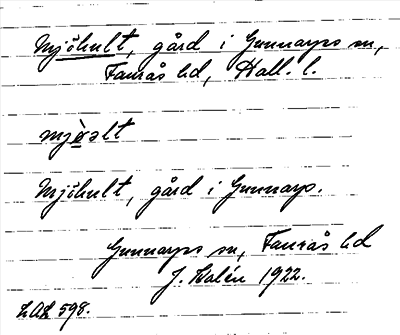 Mjöhult, gård i Gunnarps sn,
Faurås hd, Hall. l.
mjò̱əlt
Mjöhult, gård i Gunnarp.
Gunnarps sn, Faurås hd
J. Kalén 1922.
LAL 598.